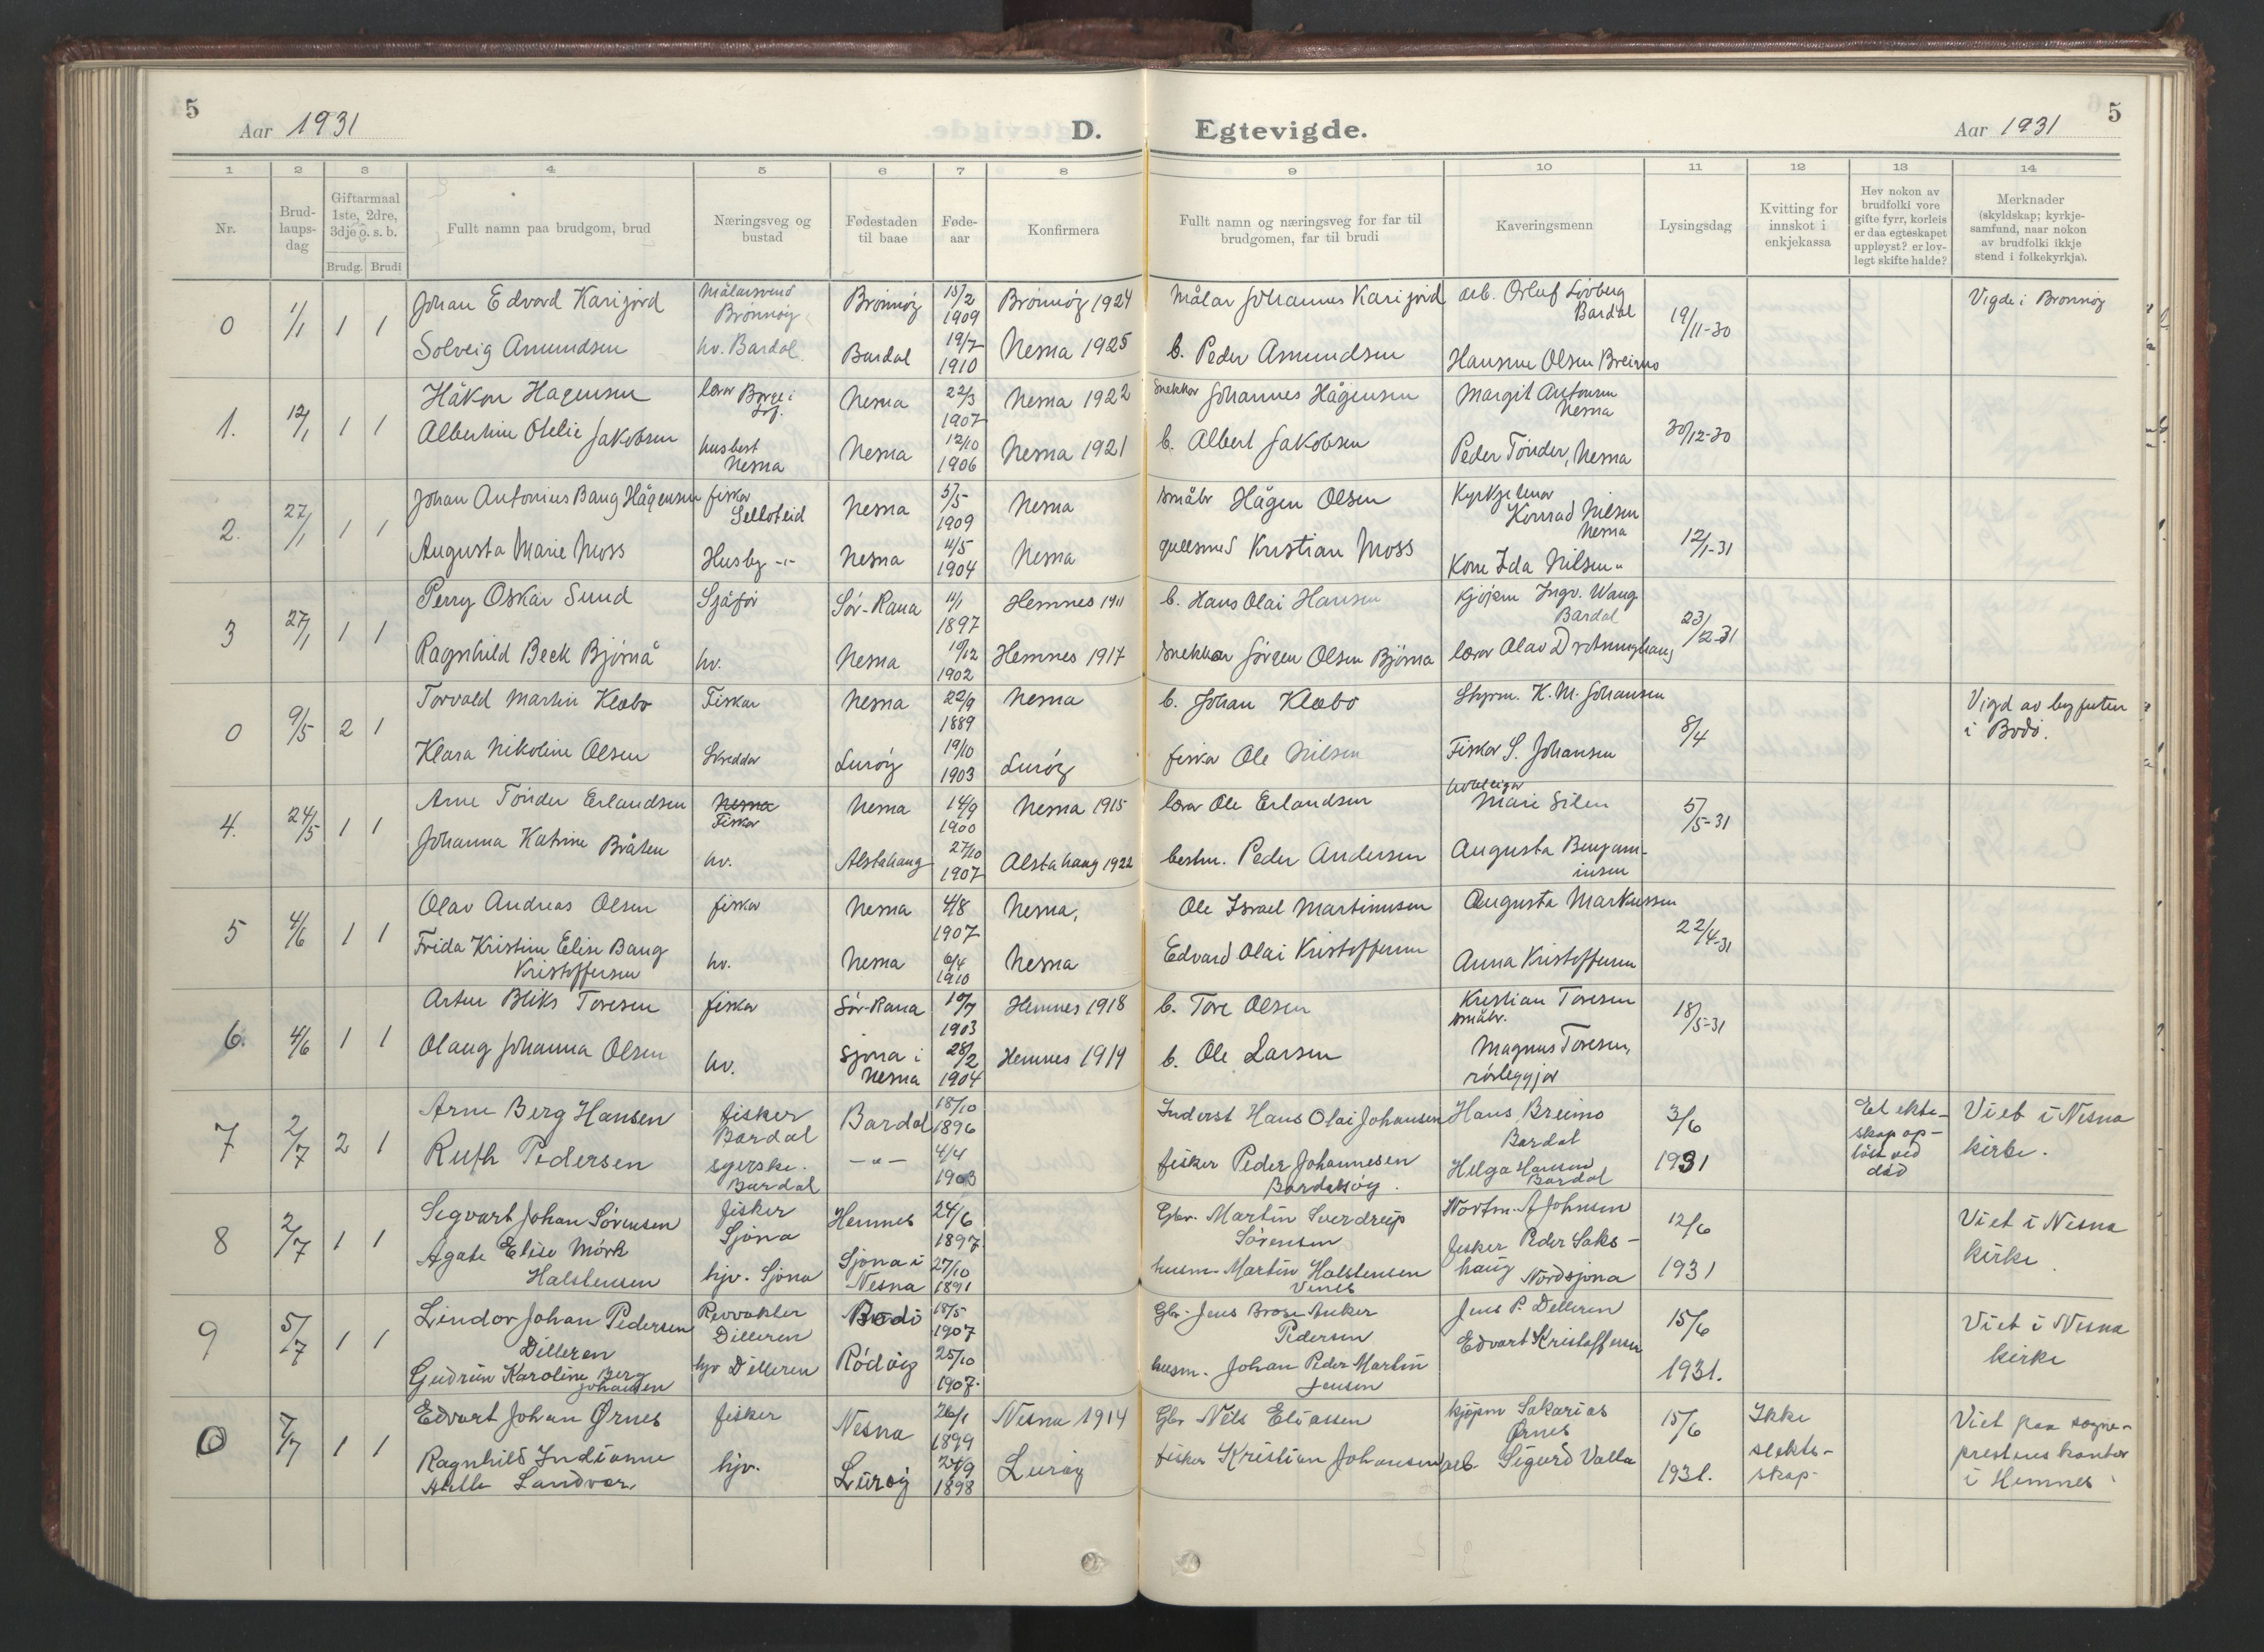 5
Aar 1931
D.
Egtevigde.
Aar 1931
5
1 2 3 4 5 6 7 8 9 10 11 12 13 14
Nr.
Brud-
laups-
dag
Giftarmaal
1ste, 2dre,
3dje o. s. b.
Brudg. Brudi
Fullt namn paa brudgom, brud
Næringsveg og
bustad
Fødestaden
til baae
Føde-
aar
Konfirmera
Fullt namn og næringsveg for far til
brudgomen, far til brudi
Kaveringsmenn
Lysingsdag
Kvitting for
innskot i
enkjekassa
Hev nokon av
brudfolki vore
gifte fyrr, korleis
er daa egteskapet
uppløyst? er lov-
legt skifte halde?
Merknader
(skyldskap; kyrkje-
samfund, naar nokon
av brudfolki ikkje
stend i folkekyrkja).
0 1/1 1 1
Johan Edvard Karijord
Målarsvend
Brønnøy
Brønnøy
15/2
1909
Brønnøy 1924
Målar Johannes Karijord
arb. Orluf Lovberg
Bardal
19/11-30
Vigde i Brønnøy
Solveig Amundsen
hv. Bardal
Bardal
19/7
1910
Nesna 1925
b. Peder Amundsen
Hansine Olsen Breimo
1. 12/1 1 1
Håkon Hagensen
lærar Borge i
Nesna
22/3
1907
Nesna 1922
Snekkar Johannes Hågensen
Margit Antonsen
Nesna
30/12-30
Albertine Otelie Jakobsen
husbest
Nesna
Nesna
12/10
1906
Nesna 1921
b. Albert Jakobsen
Peder Tønder, Nesna
2. 27/1 1 1
Johan Antonius Baug Hågensen
fiskar
Selloteid
Nesna
5/5
1909
Nesna
småbr Hågen Olsen
Kyrkjetenar
Konrad Nilsen
Nesna
12/1-31
Augusta Marie Moss
Husby -"-
Nesna
4/5
1904
Nesna
gullsmed Kristian Moss
Kone Ida Nilsen "
3 27/1 1 1
Perry Oskar Sund
Sjåfør
Sør-Rana
11/1
1897
Hemnes 1911
b. Hans Olai Hansen
Kjøpm Ingv. Waug
Bardal
23/12-31
Ragnhild Beck Bjørnå
hv.
Nesna
19/12
1902
Hemnes 1917
Snekkar Jørgen Olsen Bjørnå
lærar Olav Drotninghaug
0 9/5 2 1
Torvald Martin Klæbo
Fiskar
Nesna
22/9
1889
Nesna
b. Johan Klæbo
Styrm. K. M. Johansen
8/4
Vigd av byfuten
i Bodø.
Klara Nikoline Olsen
Skreddar
Lurøy
19/10
1903
Lurøy
fiskar Ole Nilsen
Fiskar S. Johansen
4. 24/5 1 1
Arne Tønder Erlandsen
Nesna
Fiskar
Nesna
14/9
1900
Nesna 1915
lærar Ole Erlandsen
Marie Silen
5/5-31
Johanna Katrine Bråten
hv.
Alstahaug
27/10
1907
Alstahaug 1922
bestm. Peder Andersen
Augusta Benjam-
insen
5 4/6 1 1
Olav Andreas Olsen
fiskar
Nesna
4/8
1907
Nesna,
Ole Israel Martinusen
Augusta Markussen
22/4-31
Frida Kristine Elise Baug
Kristoffersen
hv.
Nesna
6/4
1910
Nesna
Edvard Olai Kristoffersen
Anna Kristoffersen
6. 4/6 1 1
Artur Bliks Toresen
fiskar
Sør-Rana
10/7
1903
Hemnes 1918
b. Tore Olsen
Kristian Toresen
småbr.
18/5-31
Olaug Johanna Olsen
hv.
Sjona i
Nesna
28/2
1904
Hemnes 1919
b. Ole Larsen
Magnus Toresen,
rørleggjar
7 2/7 2 1
Arne Berg Hansen
fisker
Bardal
Bardal
18/10
1896
Inderst Hans Olai Johansen
Hans Breimo
Bardal
3/6
1931
Et ekte-
skap op-
løst ved
død
Viet i Nesna
kirke.
Ruth Pedersen
syerske.
Bardal
—"—
4/4
1903
fisker Peder Johannesen
Bardalsøy.
Helga Hansen
Bardal
8 2/7 1 1
Segvart Johan Sørensen
fisker
Sjona
Hemnes
24/6
1897
Gbr. Martin Sverdrup
Sørensen
Nortm. A Johnsen
12/6
1931
Viet i Nesna
kirke.
Agate Elise Mørk
Halstensen
hjv. Sjona
Sjona i
Nesna
27/10
1891
husm. Martin Halstensen
Vines
fisker Peder Saks-
haug Nordsjona
9 5/7 1 1
Lindor Johan Pedersen
Dilleren
Røvokter
Dilleren
Bodø
18/5
1907
Gbr. Jens Brose Anker
Pedersen
Jens P. Delleren
15/6
1931.
Viet i Nesna
kirke
Gudrun Karoline Berg
Johansen
hjv Dilleren
Rødøy
25/10
1907.
husm. Johan Peder Martin
Jensen
Edvart Kristoffersen
0 7/7 1 1
Edvart Johan Ørnes
fisker
Nesna
26/1
1899
Nesna 1914
Gbr Nels Eliassen
kjøpm Sakarias
Ørnes
15/6
1931.
Ikke
slekt-
skap.
Viet paa sogne-
prestens kontor
i Hemnes
Ragnhild Indianne
Landvor
hjv.
Lurøy
24/9
1898
Lurøy
fisker Kristian Johansen
arb. Sigurd Valla